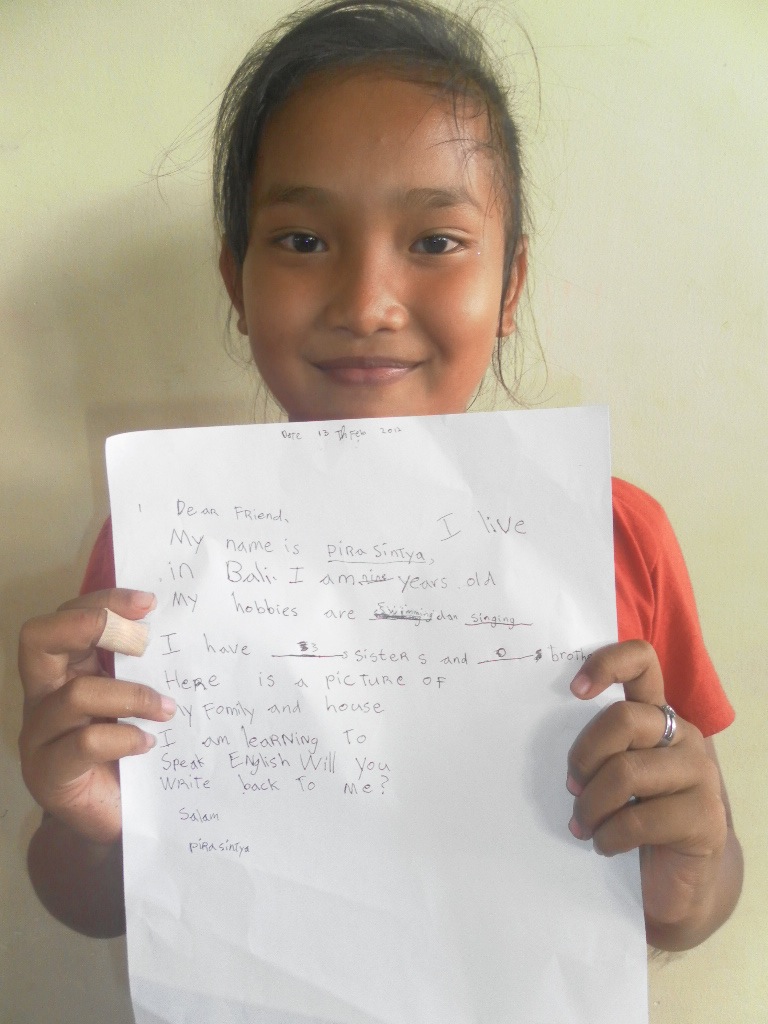 Date 13 Th Feb 2012
Dear Friend,
My name is pirasintya, I live
in Bali. I am nine years old
My hobbies are Swimming dan singing
I have 3 sisters and 0 brothe
Here is a picture of
My Family and house
I am learning To
Speak English Will you
Write back To Me?
Salam
pirasintya